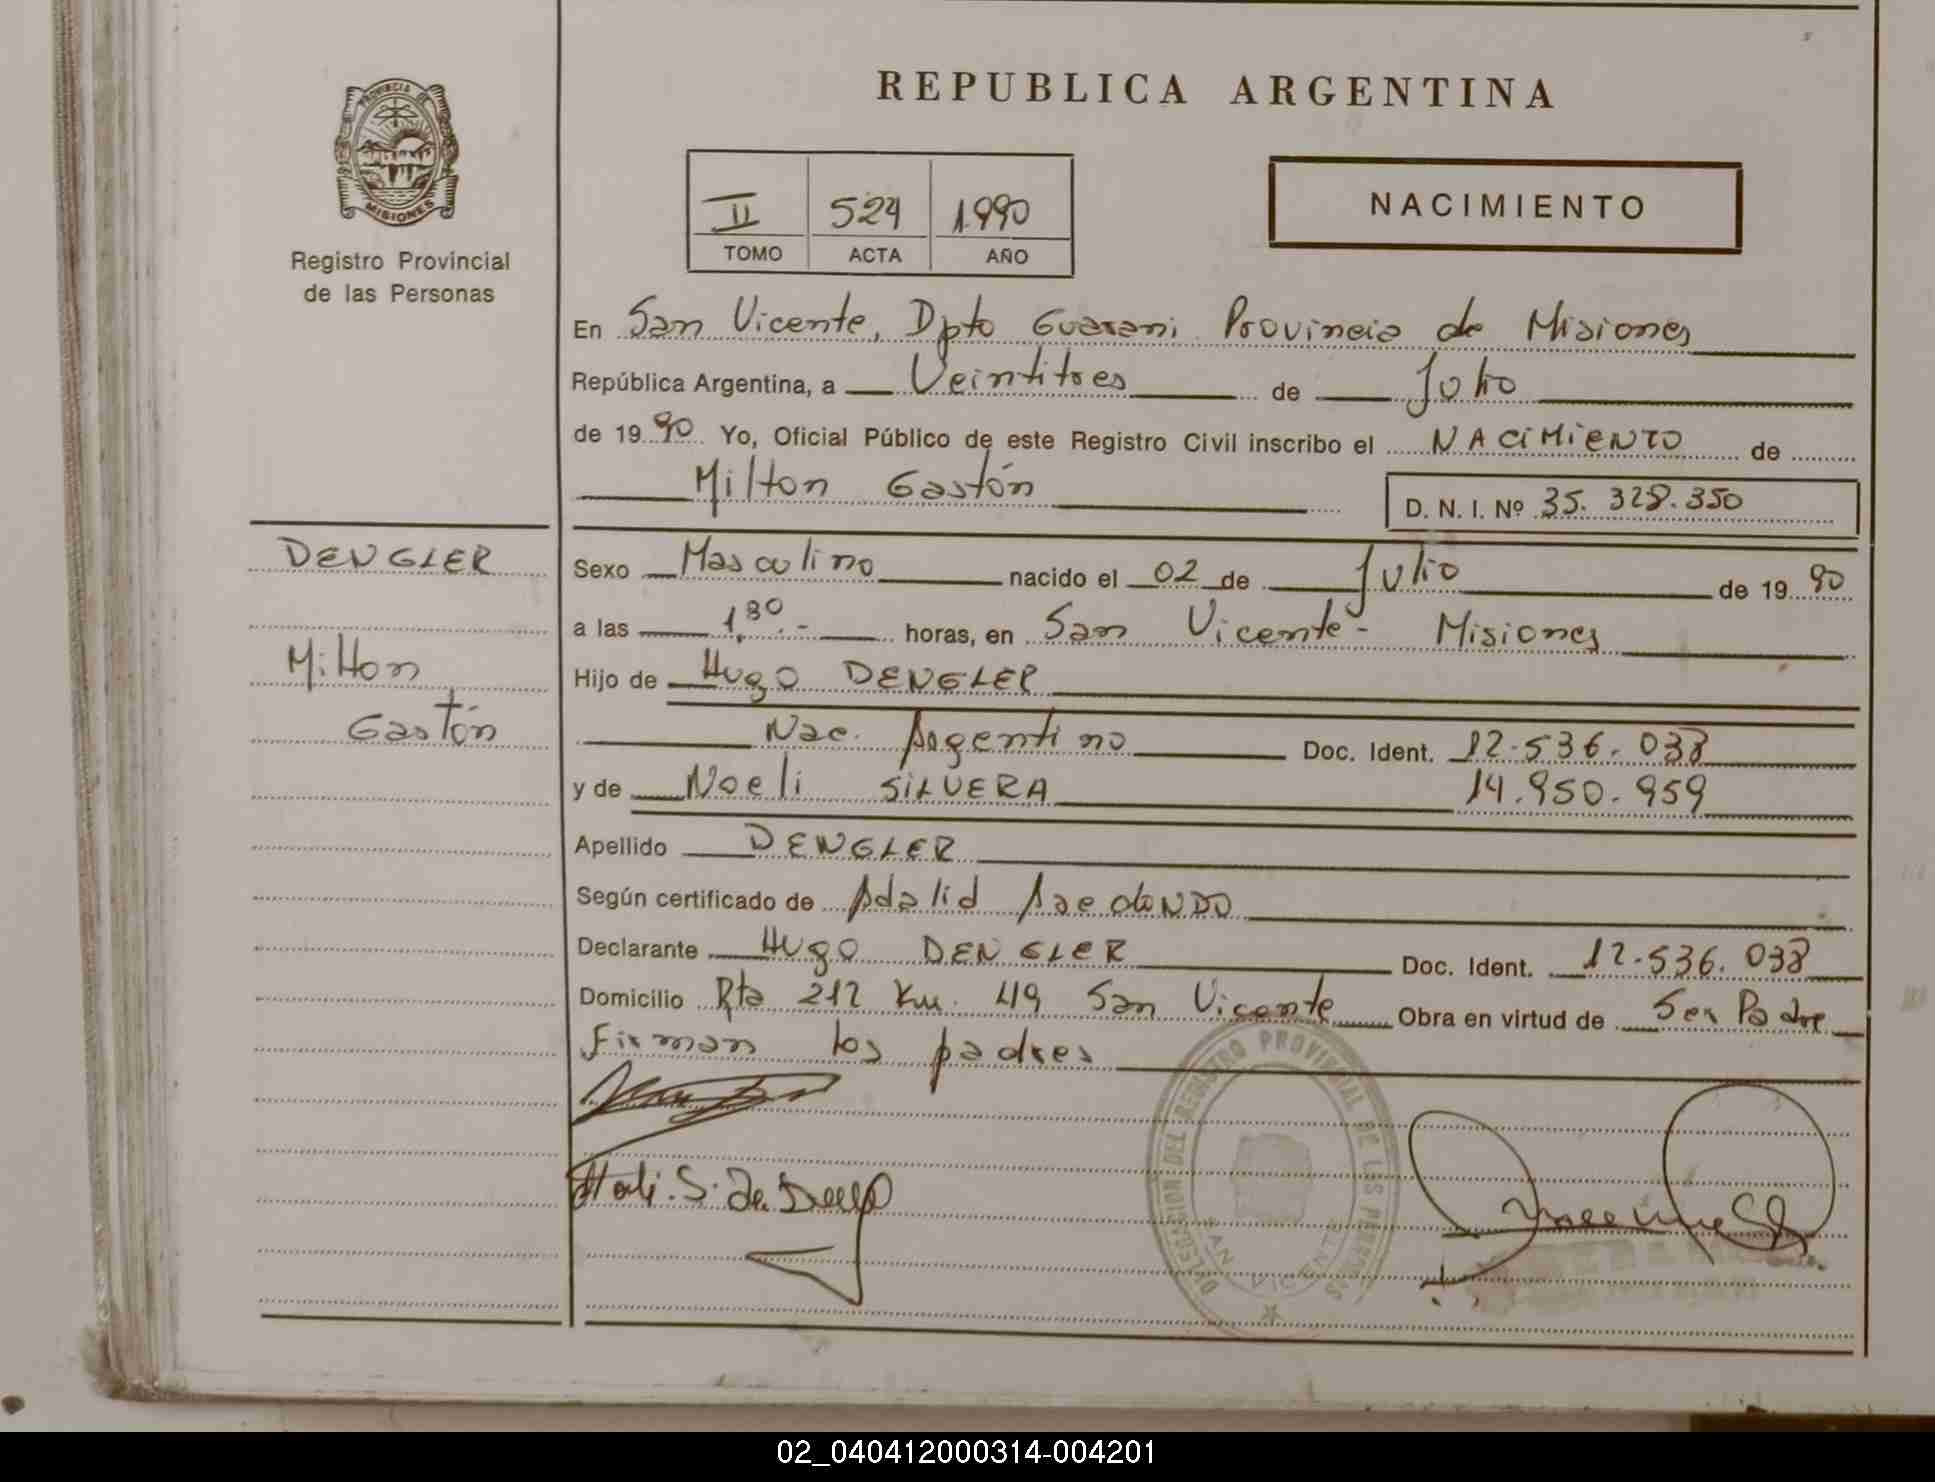 PROVINCIA DE
MISIONES
Registro Provincial
de las Personas
REPUBLICA ARGENTINA
II 524 1.990
TOMO ACTA AÑO
NACIMIENTO
En San Vicente, Dpto Guarani Provincia de Misiones
República Argentina, a Veintitres de Julio
de 1990 Yo, Oficial Público de este Registro Civil inscribo el NACIMIENTO de
Milton Gastón D. N. I. Nº 35.328.350
DENGLER
Milton
Gastón
Sexo Masculino nacido el 02 de Julio de 1990
a las 1,30.- horas, en San Vicente - Misiones
Hijo de Hugo DENGLER
Nac. Argentino Doc. Ident. 12.536.038
y de Noeli SILVERA 14.950.959
Apellido DENGLER
Según certificado de Adalid
Declarante Hugo DENGLER Doc. Ident. 12.536.038
Domicilio Rta 212 Km. 49 San Vicente Obra en virtud de Ser Padre
Firman los padres
DELEGACION DEL REGISTRO PROVINCIAL DE LAS PERSONAS
SAN VICENTE
02_040412000314-004201